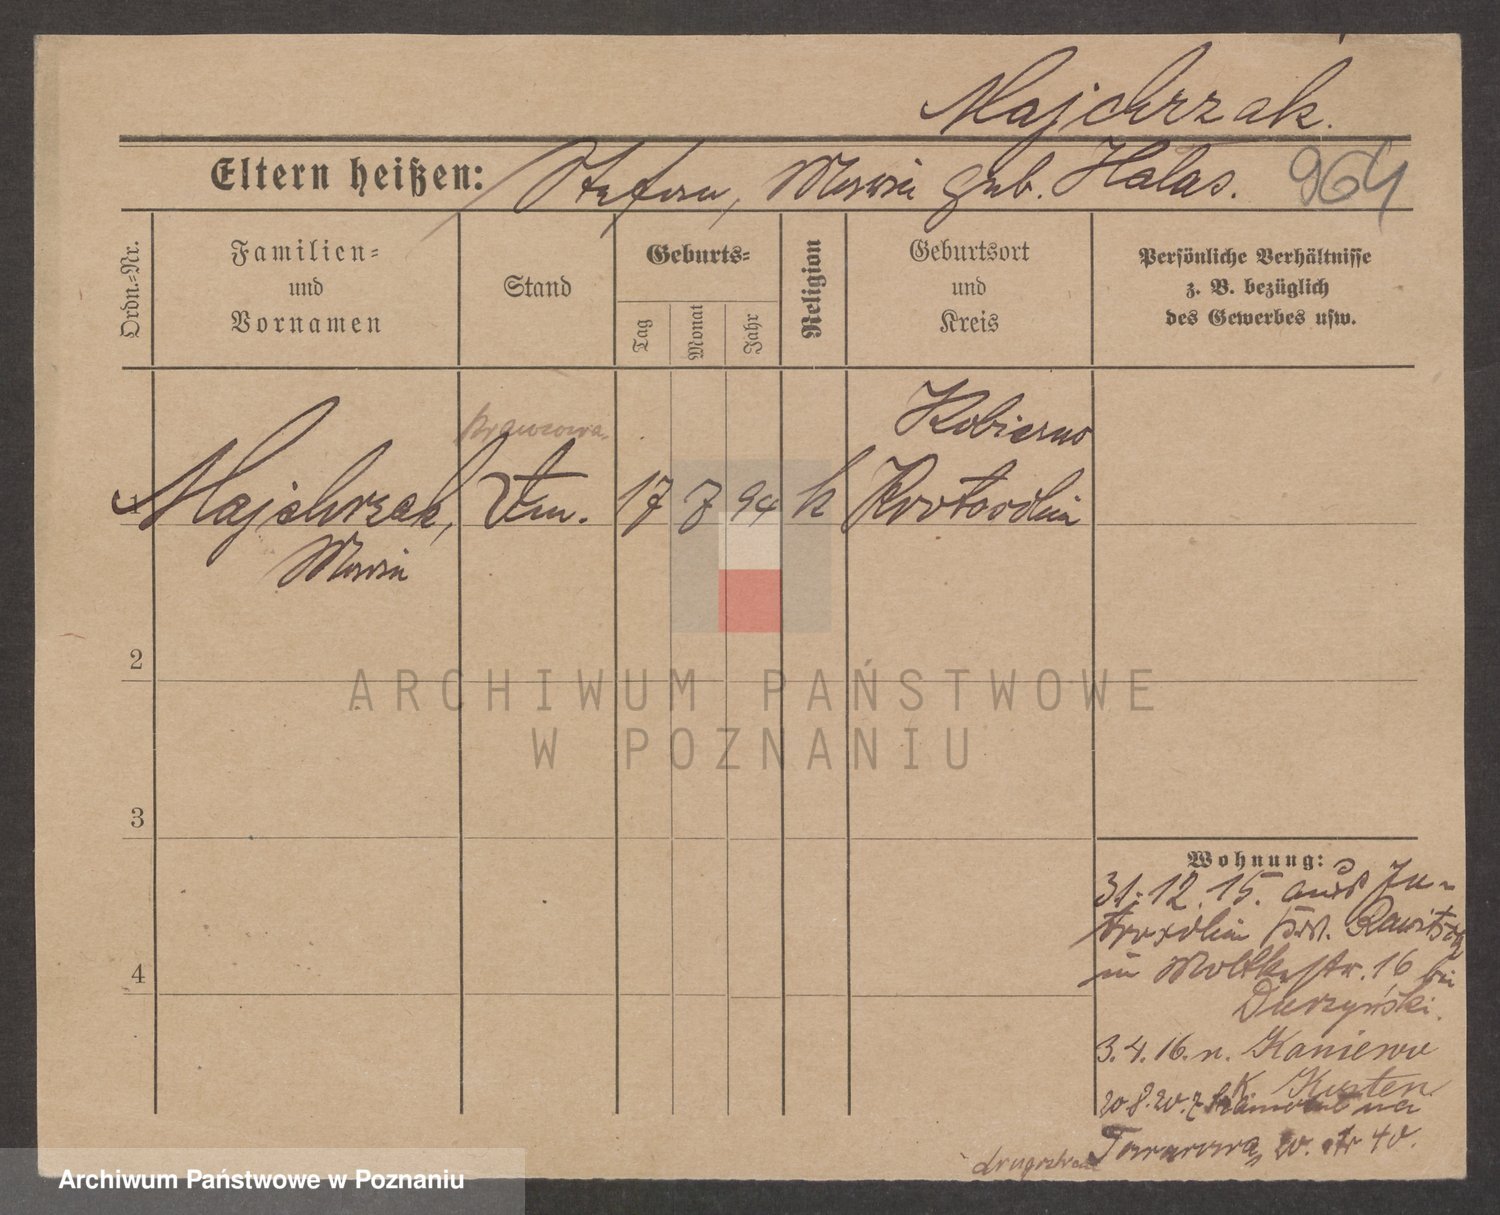 Majchrzak.
Eltern heißen: Stefan, Maria geb. Halas. 964
Ordn.-Nr.
Familien-
und
Vornamen
Stand
Geburts-
Tag
Monat
Jahr
Religion
Geburtsort
und
Kreis
Persönliche Verhältnisse
z. B. bezüglich
des Gewerbes usw.
Kobierno
1 Majchrzak, 17 7 94 k Krotoschin
Maria
2
ARCHIWUM PAŃSTWOWE
W POZNANIU
3
4
Wohnung:
31.12.15. aus Ju-
troschin Krs. Rawitsch
in Moltkestr. 16 bei
3.4.16. n. Kaniewo
K Kosten
20.8.20. z na
Towarową 20. str 40.
Archiwum Państwowe w Poznaniu